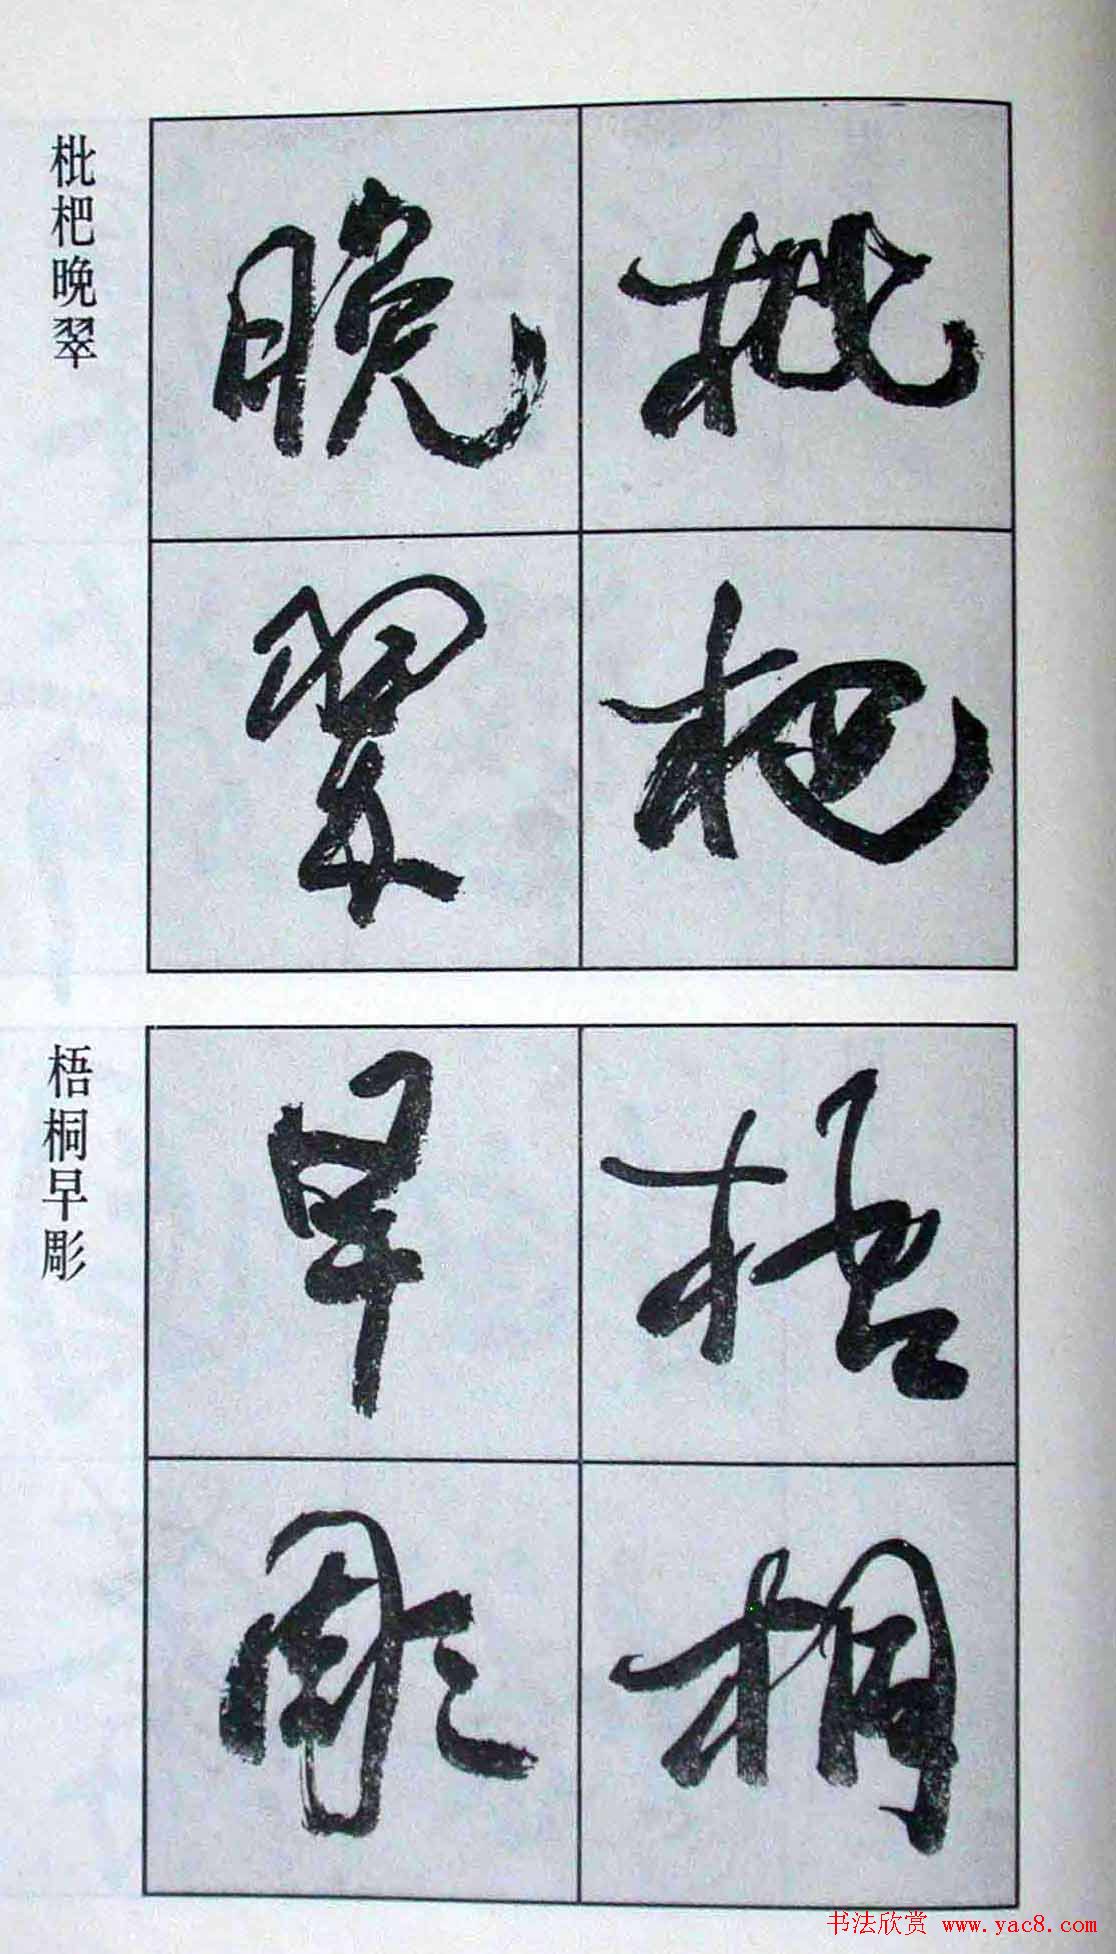 枇杷
晚翠
枇杷晚翠
梧桐
早彫
梧桐早彫
书法欣赏 www.yac8.com